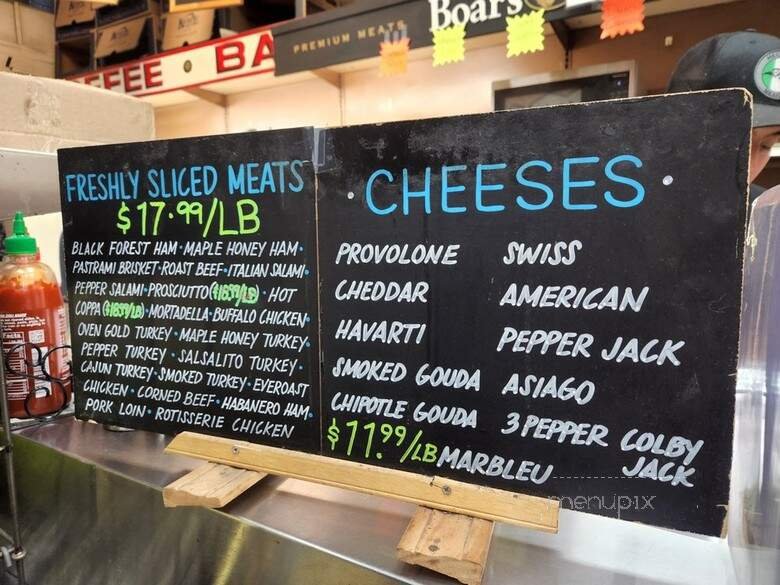 FEE • BA
PREMIUM MEATS
Boar's
FRESHLY SLICED MEATS
$17.99/LB
BLACK FOREST HAM • MAPLE HONEY HAM •
PASTRAMI BRISKET • ROAST BEEF • ITALIAN SALAMI •
PEPPER SALAMI • PROSCIUTTO • HOT
COPPA • MORTADELLA • BUFFALO CHICKEN •
OVEN GOLD TURKEY • MAPLE HONEY TURKEY •
PEPPER TURKEY • SALSALITO TURKEY •
CAJUN TURKEY • SMOKED TURKEY • EVEROAST
CHICKEN • CORNED BEEF • HABANERO HAM •
PORK LOIN • ROTISSERIE CHICKEN
• CHEESES •
PROVOLONE
CHEDDAR
HAVARTI
SMOKED GOUDA
CHIPOTLE GOUDA
$11.99/LB MARBLEU
SWISS
AMERICAN
PEPPER JACK
ASIAGO
3 PEPPER COLBY
JACK
menupix